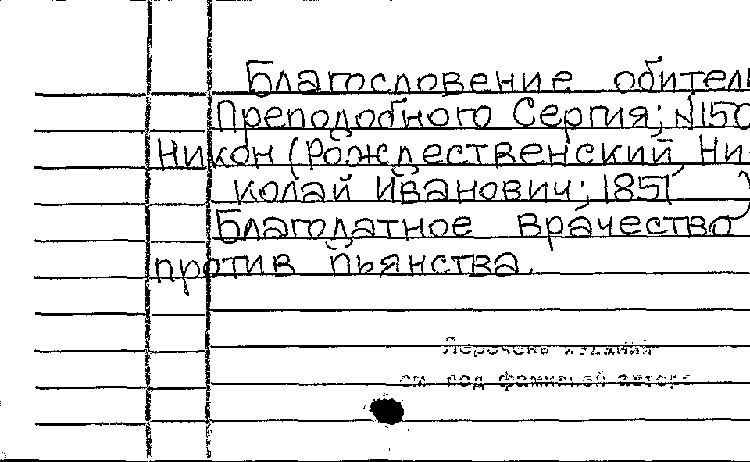 Благословение обител
Преподобного Сергия; №150
Никон (Рождественский, Ни-
колай Иванович; 1851 )
Благодатное врачество
против пьянства.
Перечень изданий
см. под фамилией автора